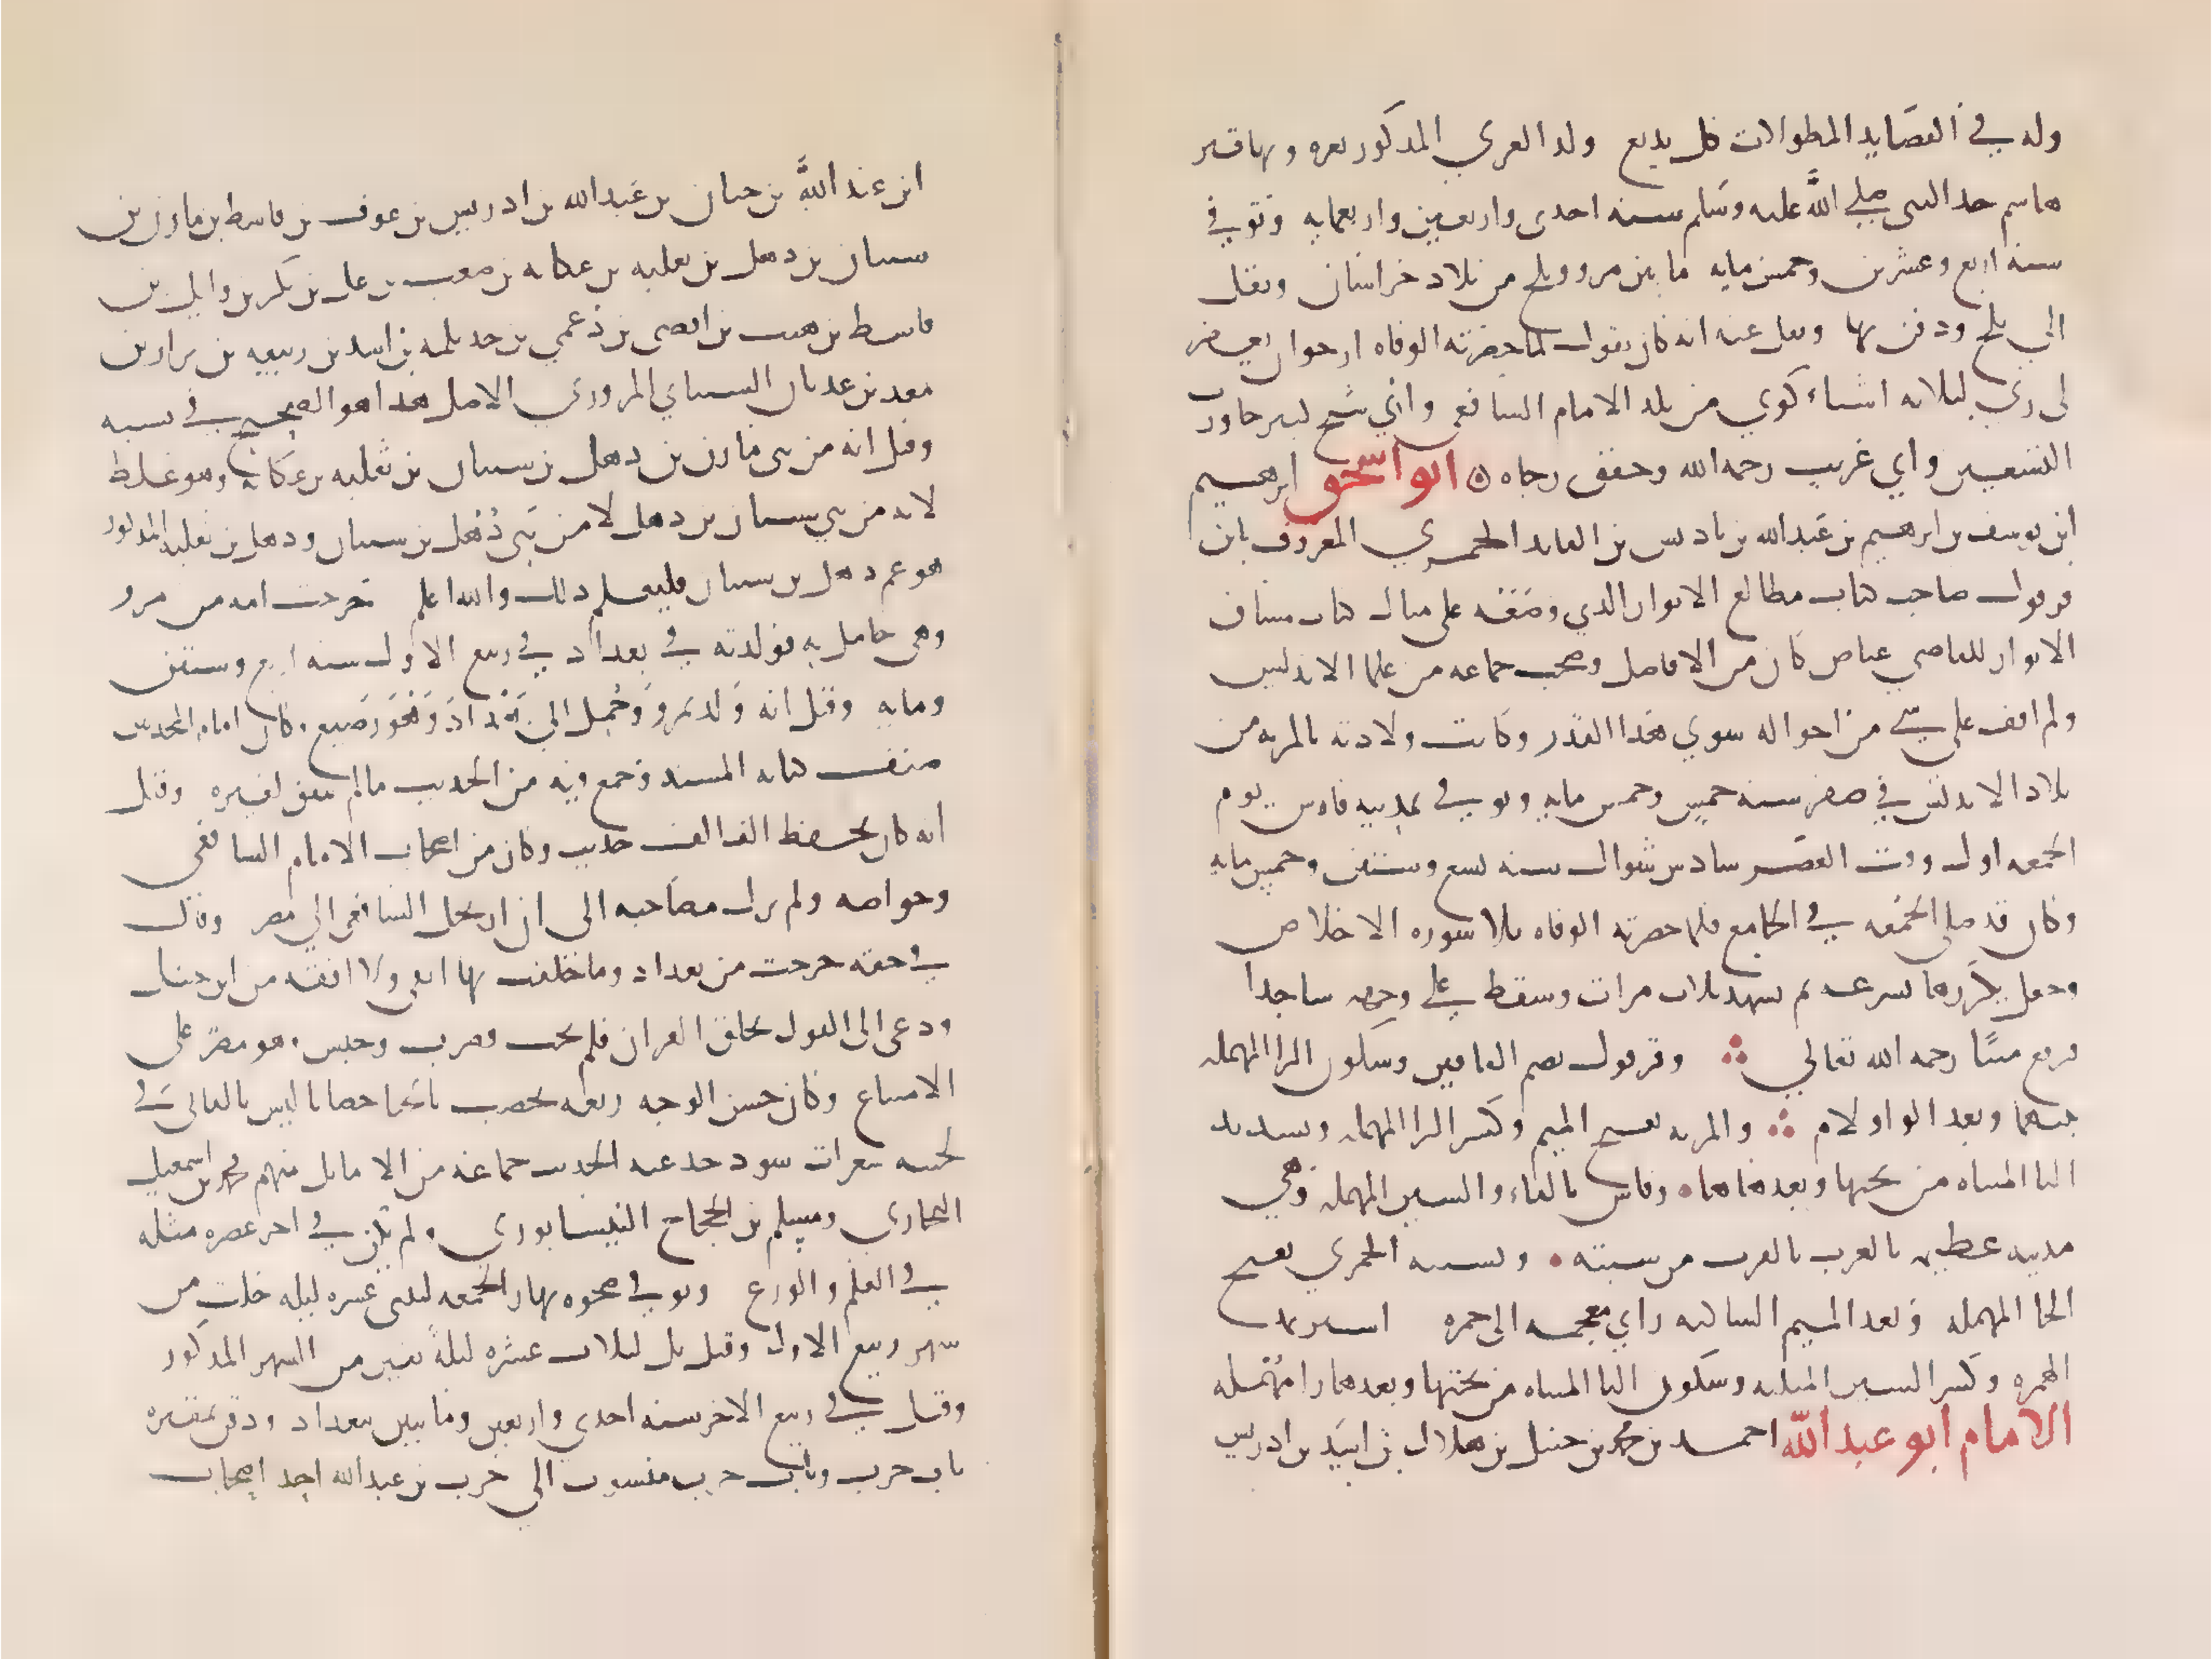 وله في القصايد المطولات كل بديع ولد الغزي المذكور بغزه وبها قبر
هاشم جد النبي صلى الله عليه وسلم سنه احدى واربعين واربعمايه وتوفي
سنه اربع وعشرين وخمس مايه ما بين مرو وبلخ من بلاد خراسان ونقل
الي بلخ ودفن بها ونقل عنه انه كان يقول لما حضرته الوفاه ارجوا ان يغفر
لي ربي لثلاثه اشياء كوني من بلد الامام الشافعي واني شيخ كبير جاوزت
التسعين واني غريب رحمه الله وحقق رجاه ه ابو اسحق ابرهيم
ابن يوسف بن ابرهيم بن عبد الله بن باديس بن القايد الحمزي المعروف بابن
قرقول صاحب كتاب مطالع الانوار الذي وضعه على مثال كتاب مشارق
الانوار للقاضي عياض كان من الافاضل وصحب جماعه من علما الاندلس
ولم اقف على شي من احواله سوي هذا القدر وكانت ولادته بالمريه من
بلاد الاندلس في صفر سنه خمس وخمس مايه وتوفي بمدينه فاس يوم
الجمعه اول وقت العصر سادس شوال سنه تسع وستين وخمس مايه
وكان قد صلى الجمعه في الجامع فلما حضرته الوفاه تلا سوره الاخلاص
وجعل يكررها بسرعه ثم تشهد ثلاث مرات وسقط علي وجهه ساجدا
فرفع ميتا رحمه الله تعالي وقرقول بضم القافين وسكون الرا المهمله
بينهما وبعد الواو لام والمريه بفتح الميم وكسر الرا المهمله وتشديد
اليا المثناه من تحتها وبعدها ها وفاس بالفاء والسين المهمله وهي
مدينه عظيمه بالغرب بالقرب من سبته ونسبه الحمزي بفتح
الحا المهمله وبعد الميم الساكنه زاي معجمه الى حمزه اسير بمد
الهمزه وكسر السين المثلثه وسكون اليا المثناه من تحتها وبعدها را مهمله
الامام ابو عبد الله احمد بن محمد بن حنبل بن هلال بن اسد بن ادريس
ابن عبد الله بن حيان بن عبد الله بن ادريس بن عوف بن قاسط بن مازن بن
شيبان بن دهل بن ثعلبه بن عكابه بن صعب بن علي بن بكر بن وايل بن
قاسط بن هنب بن افصى بن دعمي بن جديلمه بن اسد بن ربيعه بن نزار بن
معد بن عدنان الشيباني المروزي الاصل هذا هو الصحيح في نسبه
وقيل انه من بني مازن بن دهل بن شيبان بن ثعلبه بن عكابه وهو غلط
لانه من بني شيبان بن دهل لا من بني ذهل بن شيبان ودهل بن ثعلبه المذكور
هو عم دهل بن شيبان فليعلم ذلك والله اعلم خرجت امه من مرو
وهي حامل به فولدته في بغداد في ربيع الاول سنه اربع وستين
ومايه وقيل انه ولد بمرو وحمل الي بغداد وهو رضيع وكان امام المحدثين
صنف كتابه المسند وجمع فيه من الحديث ما لم يتفق لغيره وقيل
انه كان يحفظ الف الف حديث وكان من اصحاب الامام الشافعي
وخواصه ولم يزل مصاحبه الى ان ارتحل الشافعي الي مصر وقال
في حقه خرجت من بغداد وما خلفت بها اتقى ولا افقه من ابن حنبل
ودعى الى القول بخلق القران فلم يجب فضرب وحبس وهو مصر على
الامتناع وكان حسن الوجه ربعه يخضب بالحنا خضابا ليس بالقاني في
لحيته شعرات سود حدعنه الحديث جماعه من الاماثل منهم محمد بن اسمعيل
البخاري ومسلم بن الحجاج النيسابوري ولم يكن في اخر عصره مثله
في العلم والورع وتوفي ضحوه نهار الجمعه لثنتي عشره ليله خلت من
شهر ربيع الاول وقيل بل لثلاث عشره ليلة بقين من الشهر المذكور
وقيل في ربيع الاخر سنه احدي واربعين ومايتين ببغداد ودفن بمقبره
باب حرب وباب حرب منسوب الي حرب بن عبد الله احد اصحاب